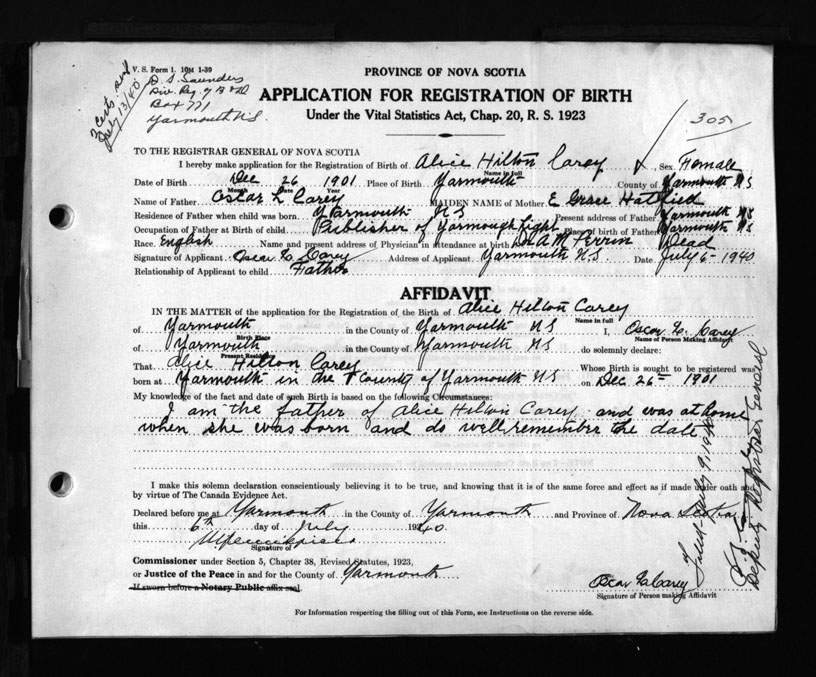 V. S. Form 1. 10M 1-39
2 certs. sent
July 13/40
D. S. Saunders
Div. Reg. of B & D
Box 771
Yarmouth N.S.
305
PROVINCE OF NOVA SCOTIA
APPLICATION FOR REGISTRATION OF BIRTH
Under the Vital Statistics Act, Chap. 20, R. S. 1923
TO THE REGISTRAR GENERAL OF NOVA SCOTIA
I hereby make application for the Registration of Birth of Alice Hilton Carey, Sex Female
Name in full
Date of Birth Dec 26 1901 Place of Birth Yarmouth County of Yarmouth N S
Month Date Year
Name of Father Oscar L Carey MAIDEN NAME of Mother E Grace Hatfield
Residence of Father when child was born Yarmouth N S Present address of Father Yarmouth N S
Occupation of Father at Birth of child Publisher of Yarmouth Light Place of Birth of Father Yarmouth N S
Race English Name and present address of Physician in attendance at birth Dr A M Perrin Dead
Signature of Applicant Oscar L Carey Address of Applicant Yarmouth N.S. Date July 6 - 1940
Relationship of Applicant to child Father
AFFIDAVIT
IN THE MATTER of the application for the Registration of the Birth of Alice Hilton Carey
Name in full
of Yarmouth in the County of Yarmouth N S I, Oscar L. Carey
Birth Place Name of Person Making Affidavit
of Yarmouth in the County of Yarmouth N S do solemnly declare:
Present Residence
That Alice Hilton Carey Whose Birth is sought to be registered was
born at Yarmouth in the County of Yarmouth N S on Dec 26th 1901
My knowledge of the fact and date of such Birth is based on the following Circumstances:
I am the father of Alice Hilton Carey and was at home
when she was born and do well remember the date
I make this solemn declaration conscientiously believing it to be true, and knowing that it is of the same force and effect as if made under oath and
by virtue of The Canada Evidence Act.
Declared before me at Yarmouth in the County of Yarmouth and Province of Nova Scotia
this 6th day of July 1940
Signature of
Commissioner under Section 5, Chapter 38, Revised Statutes, 1923,
or Justice of the Peace in and for the County of Yarmouth
If sworn before a Notary Public affix seal.
Oscar L Carey
Signature of Person making Affidavit
Filed July 9, 1940
Deputy Registrar General
For Information respecting the filling out of this Form, see Instructions on the reverse side.